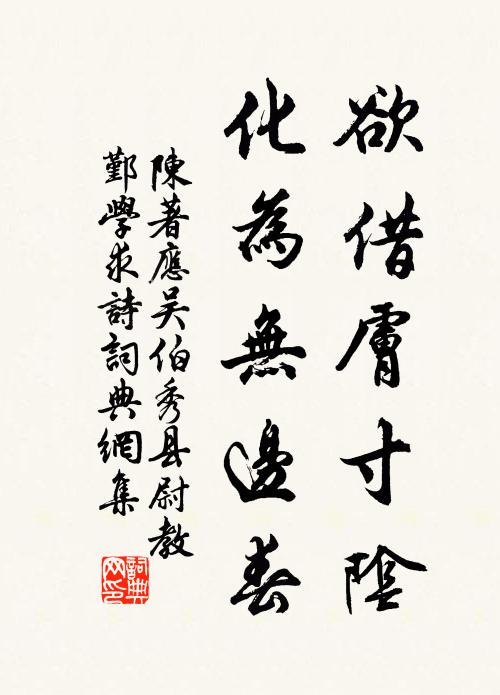 欲借膚寸陰
化為無邊春
陳著應吴伯秀县尉教
鄞學求詩詞典網集
詞典网印